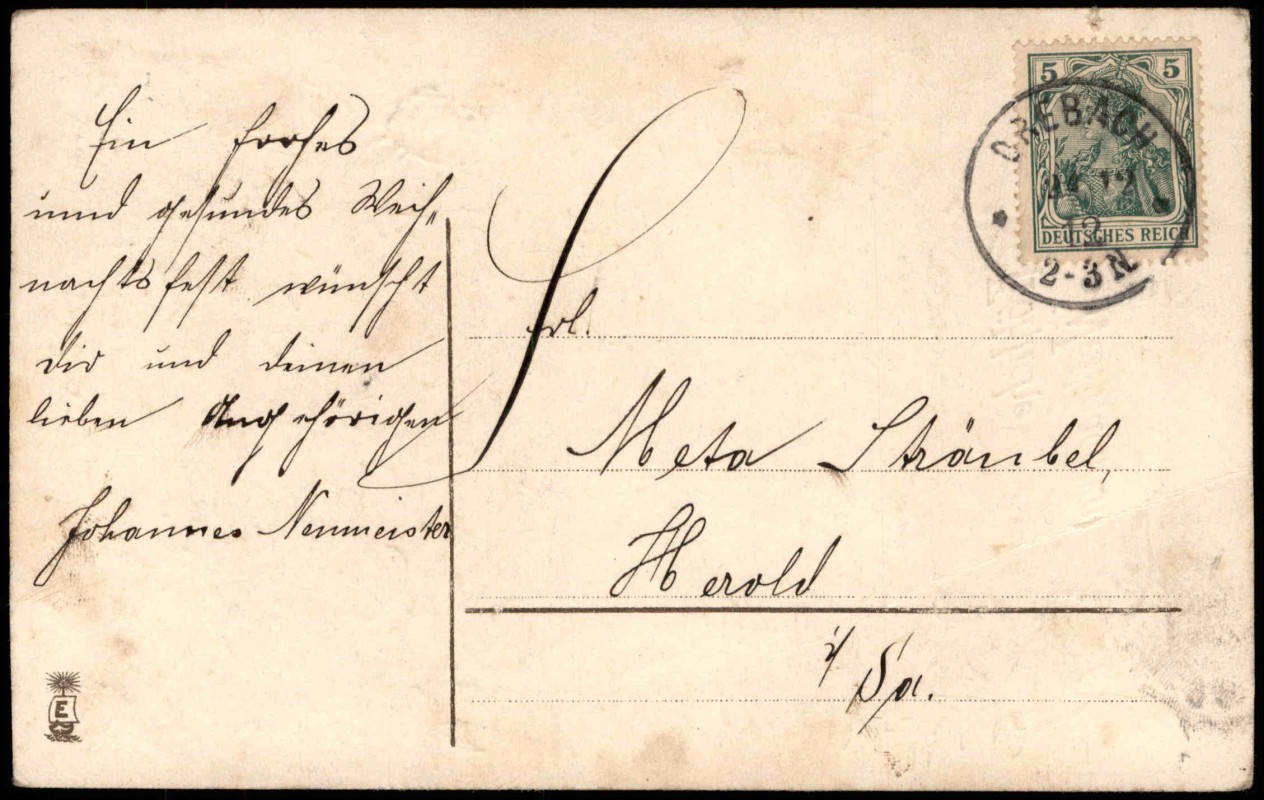 Ein frohes
und gesundes Weih-
nachtsfest wünscht
dir und deinen
lieben Angehörigen
Johannes Neumeister
5 5
DEUTSCHES REICH
DREBACH
12
12
2-3N
Frl.
Meta Sträubel,
Herold
i/Sa.
E